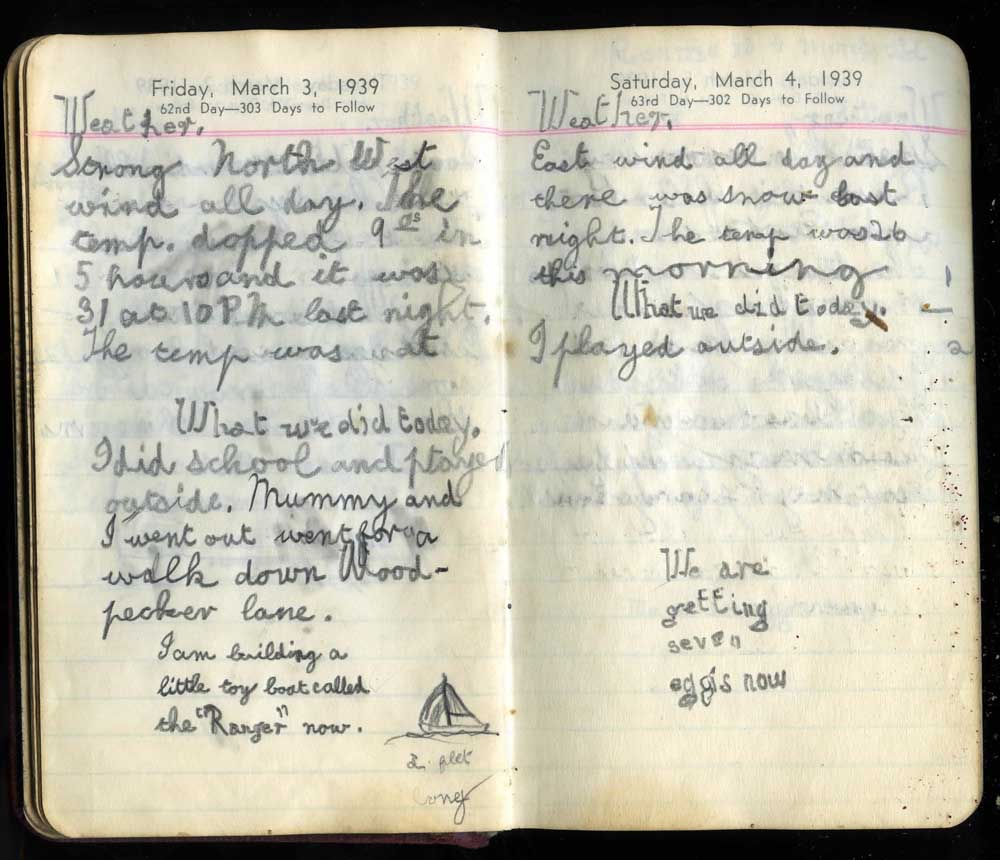 Friday, March 3, 1939
62nd Day—303 Days to Follow
Weather.
Strong North West
wind all day. The
temp. dopped 9 in
5 hours and it was
31 at 10 P M last night.
The temp was
What we did today.
I did school and played
outside. Mummy and
I went out went for a
walk down Wood-
pecker lane.
I am building a
little toy boat called
the "Ranger" now.
long
Saturday, March 4, 1939
63rd Day—302 Days to Follow
Weather.
East wind all day and
there was snow last
night. The temp was 26
this morning
What we did today.
I played outside.
We are
getting
seven
eggis now